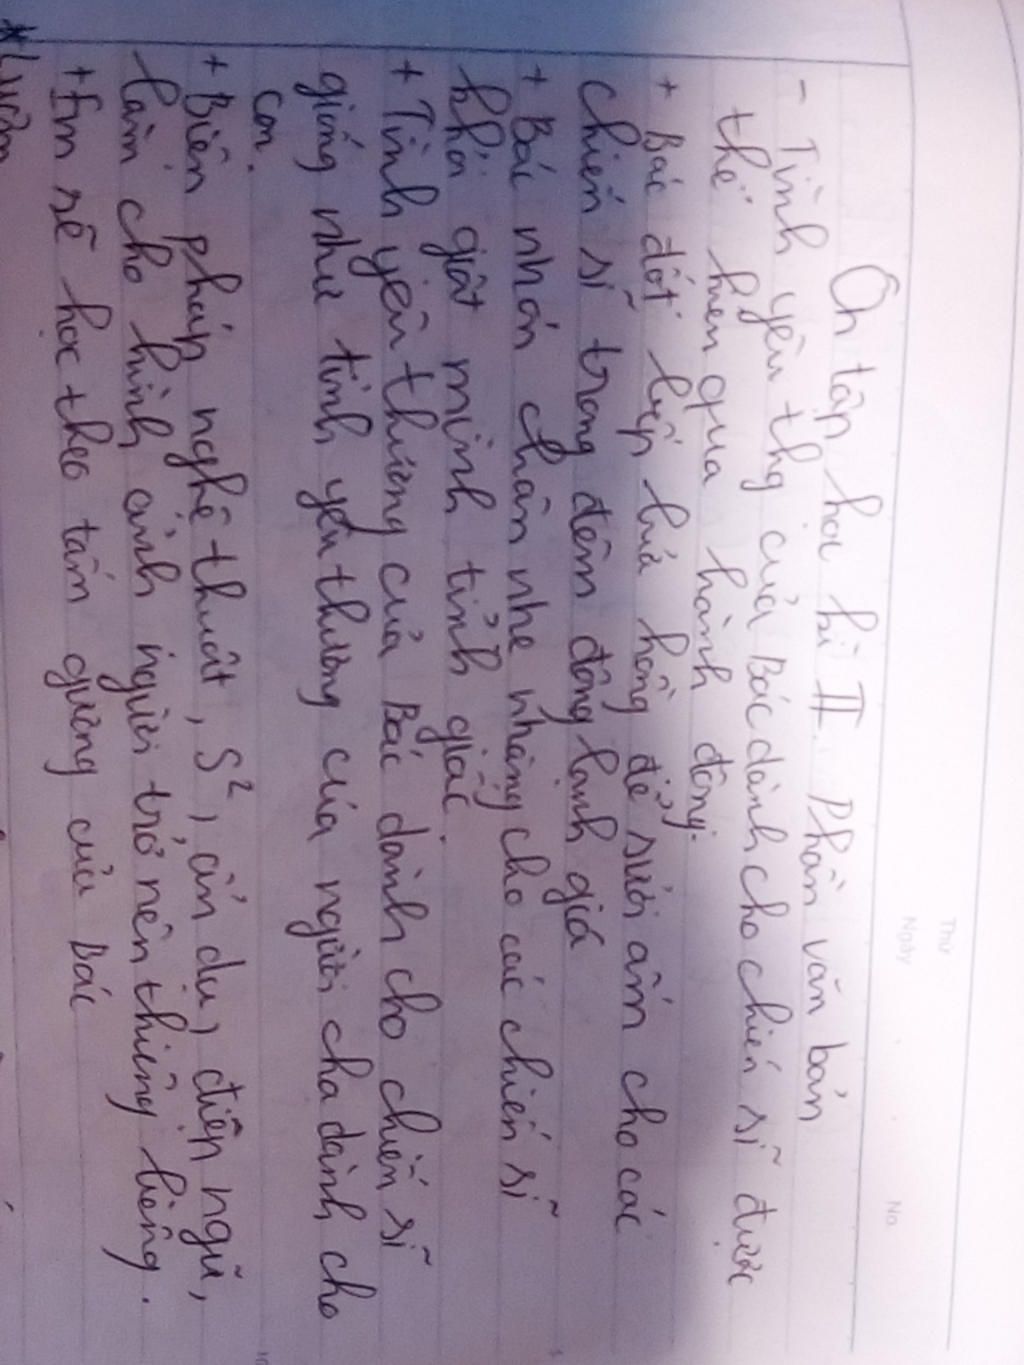 Thứ
Ngày
No.
Ôn tập học kì II. Phần văn bản
- Tình yêu thg của Bác dành cho chiến sĩ được
thể hiện qua hành động.
+ Bác đốt bếp lửa hồng để sưởi ấm cho các
chiến sĩ trong đêm đông lạnh giá
+ Bác nhón chân nhẹ nhàng cho các chiến sĩ
khỏi giật mình tỉnh giấc.
+ Tình yêu thương của Bác dành cho chiến sĩ
giống như tình yêu thương của người cha dành cho
con.
+ Biện pháp nghệ thuật, S², ẩn dụ, điệp ngữ,
làm cho hình ảnh người trở nên thiêng liêng.
+ Em sẽ học theo tấm gương của Bác